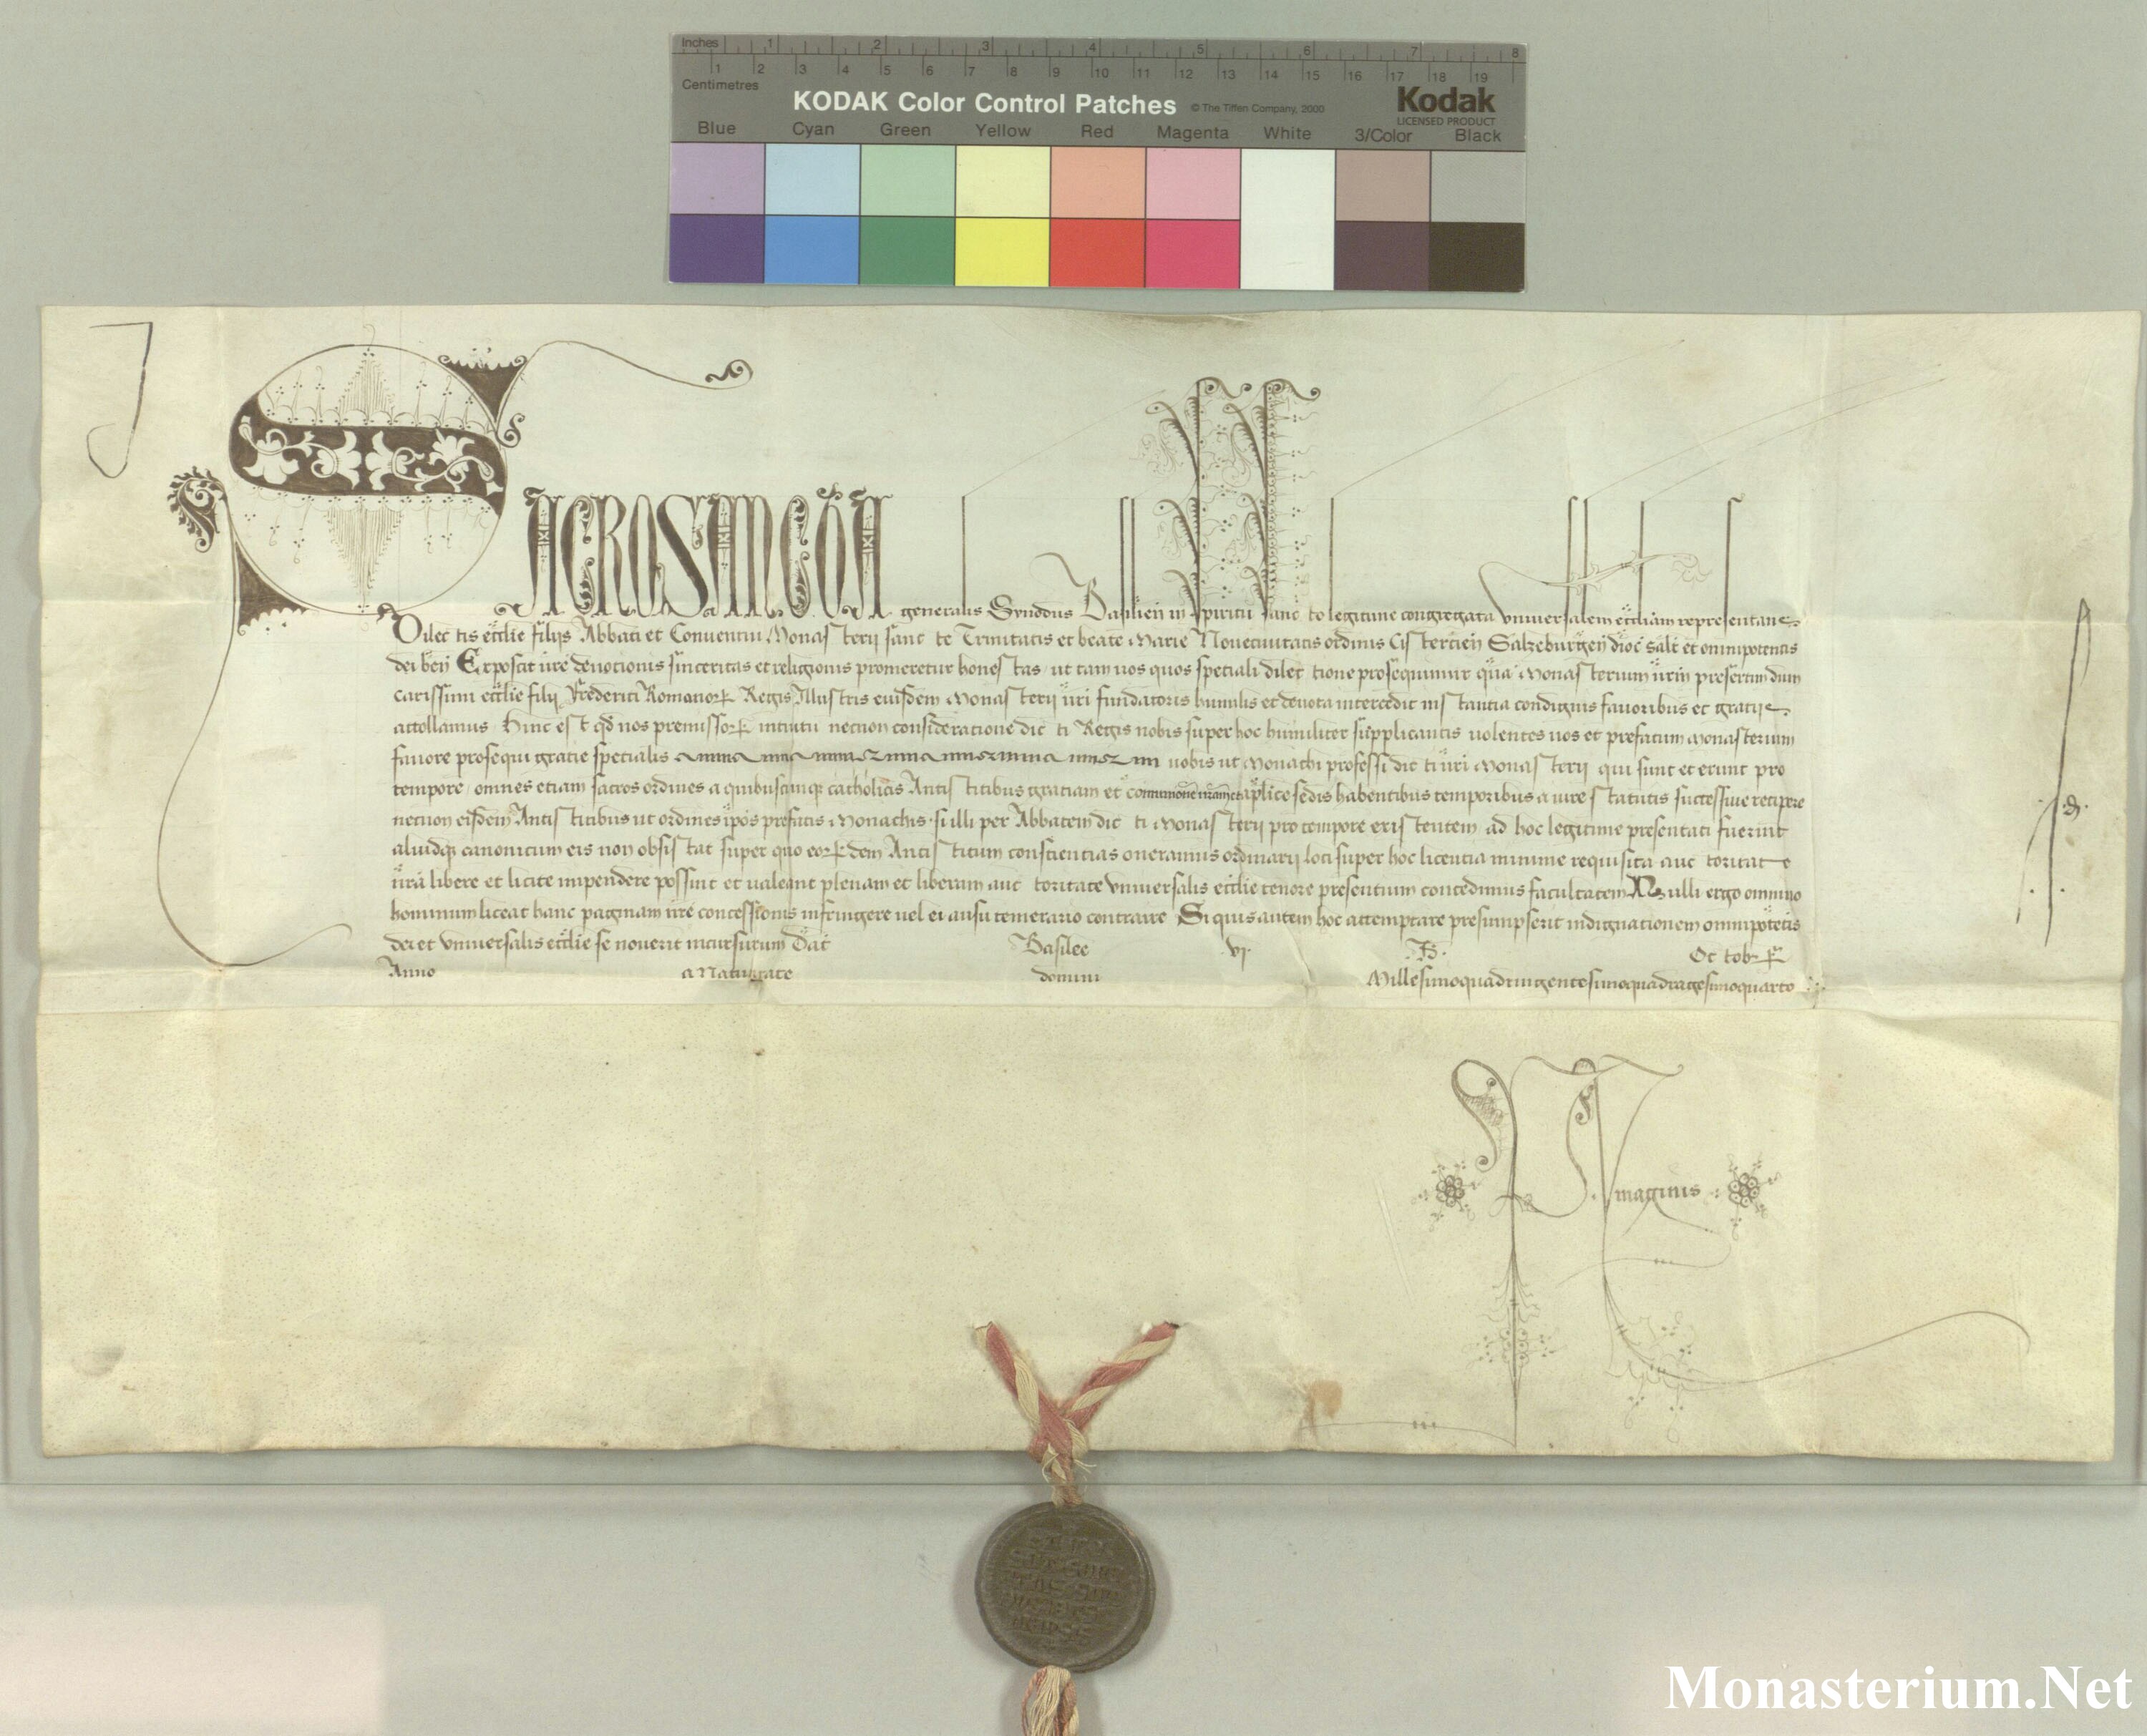 Inches 1 2 3 4 5 6 7 8
1 2 3 4 5 6 7 8 9 10 11 12 13 14 15 16 17 18 19
Centimetres
KODAK Color Control Patches © The Tiffen Company, 2000 Kodak
LICENSED PRODUCT
Blue Cyan Green Yellow Red Magenta White 3/Color Black
SACROSANCTA generalis Synodus Basilien in spiritu sancto legitime congregata vniuersalem eccliam representans
Dilectis ecclie filijs Abbati et Conuentui Monasterij sancte Trinitatis et beate Marie Noueciuitatis ordinis Cistercien Salzeburgen dioc salt et omnipotentis
dei ben Exposcit ure deuocionis sinceritas et religionis promeretur honestas ut tam uos quos speciali dilectione prosequimur qua Monasterium urm presertim dum
carissimi ecclie filij Frederici Romanorꝝ Regis Illustris eiusdem Monasterij uri fundatoris humilis et deuota intercedit instantia condignis fauoribus et gratijs
attollamus Hinc est qd nos premissorꝝ intuitu necnon consideracione dicti Regis nobis super hoc humiliter supplicantis uolentes uos et prefatum Monasterium
fauore prosequi gratie specialis uobis ut Monachi professi dicti uri Monasterij qui sunt et erunt pro
tempore omnes etiam sacros ordines a quibuscunqꝫ catholicis Antistitibus gratiam et communionem nram et aplice sedis habentibus temporibus a iure statutis successiue recipere
necnon eisdem Antistitibus ut ordines ipos prefatis Monachis si illi per Abbatem dicti Monasterij pro tempore existentem ad hoc legitime presentati fuerint
aliudqꝫ canonicum eis non obsistat super quo eorꝝdem Antistitum conscientias oneramus ordinarij loci super hoc licentia minime requisita auctoritate
nra libere et licite impendere possint et ualeant plenam et liberam auctoritate vniuersalis ecclie tenore presentium concedimus facultatem Nulli ergo omnino
hominum liceat hanc paginam nre concessionis infringere uel ei ausu temerario contraire Si quis autem hoc attemptare presumpserit indignationem omnipotetis
dei et vniuersalis ecclie se nouerit incursurum Dat Basilee vj Octobrꝝ
Anno a Natiuitate domini Millesimoquadringentesimoquadragesimoquarto
Monasterium.Net